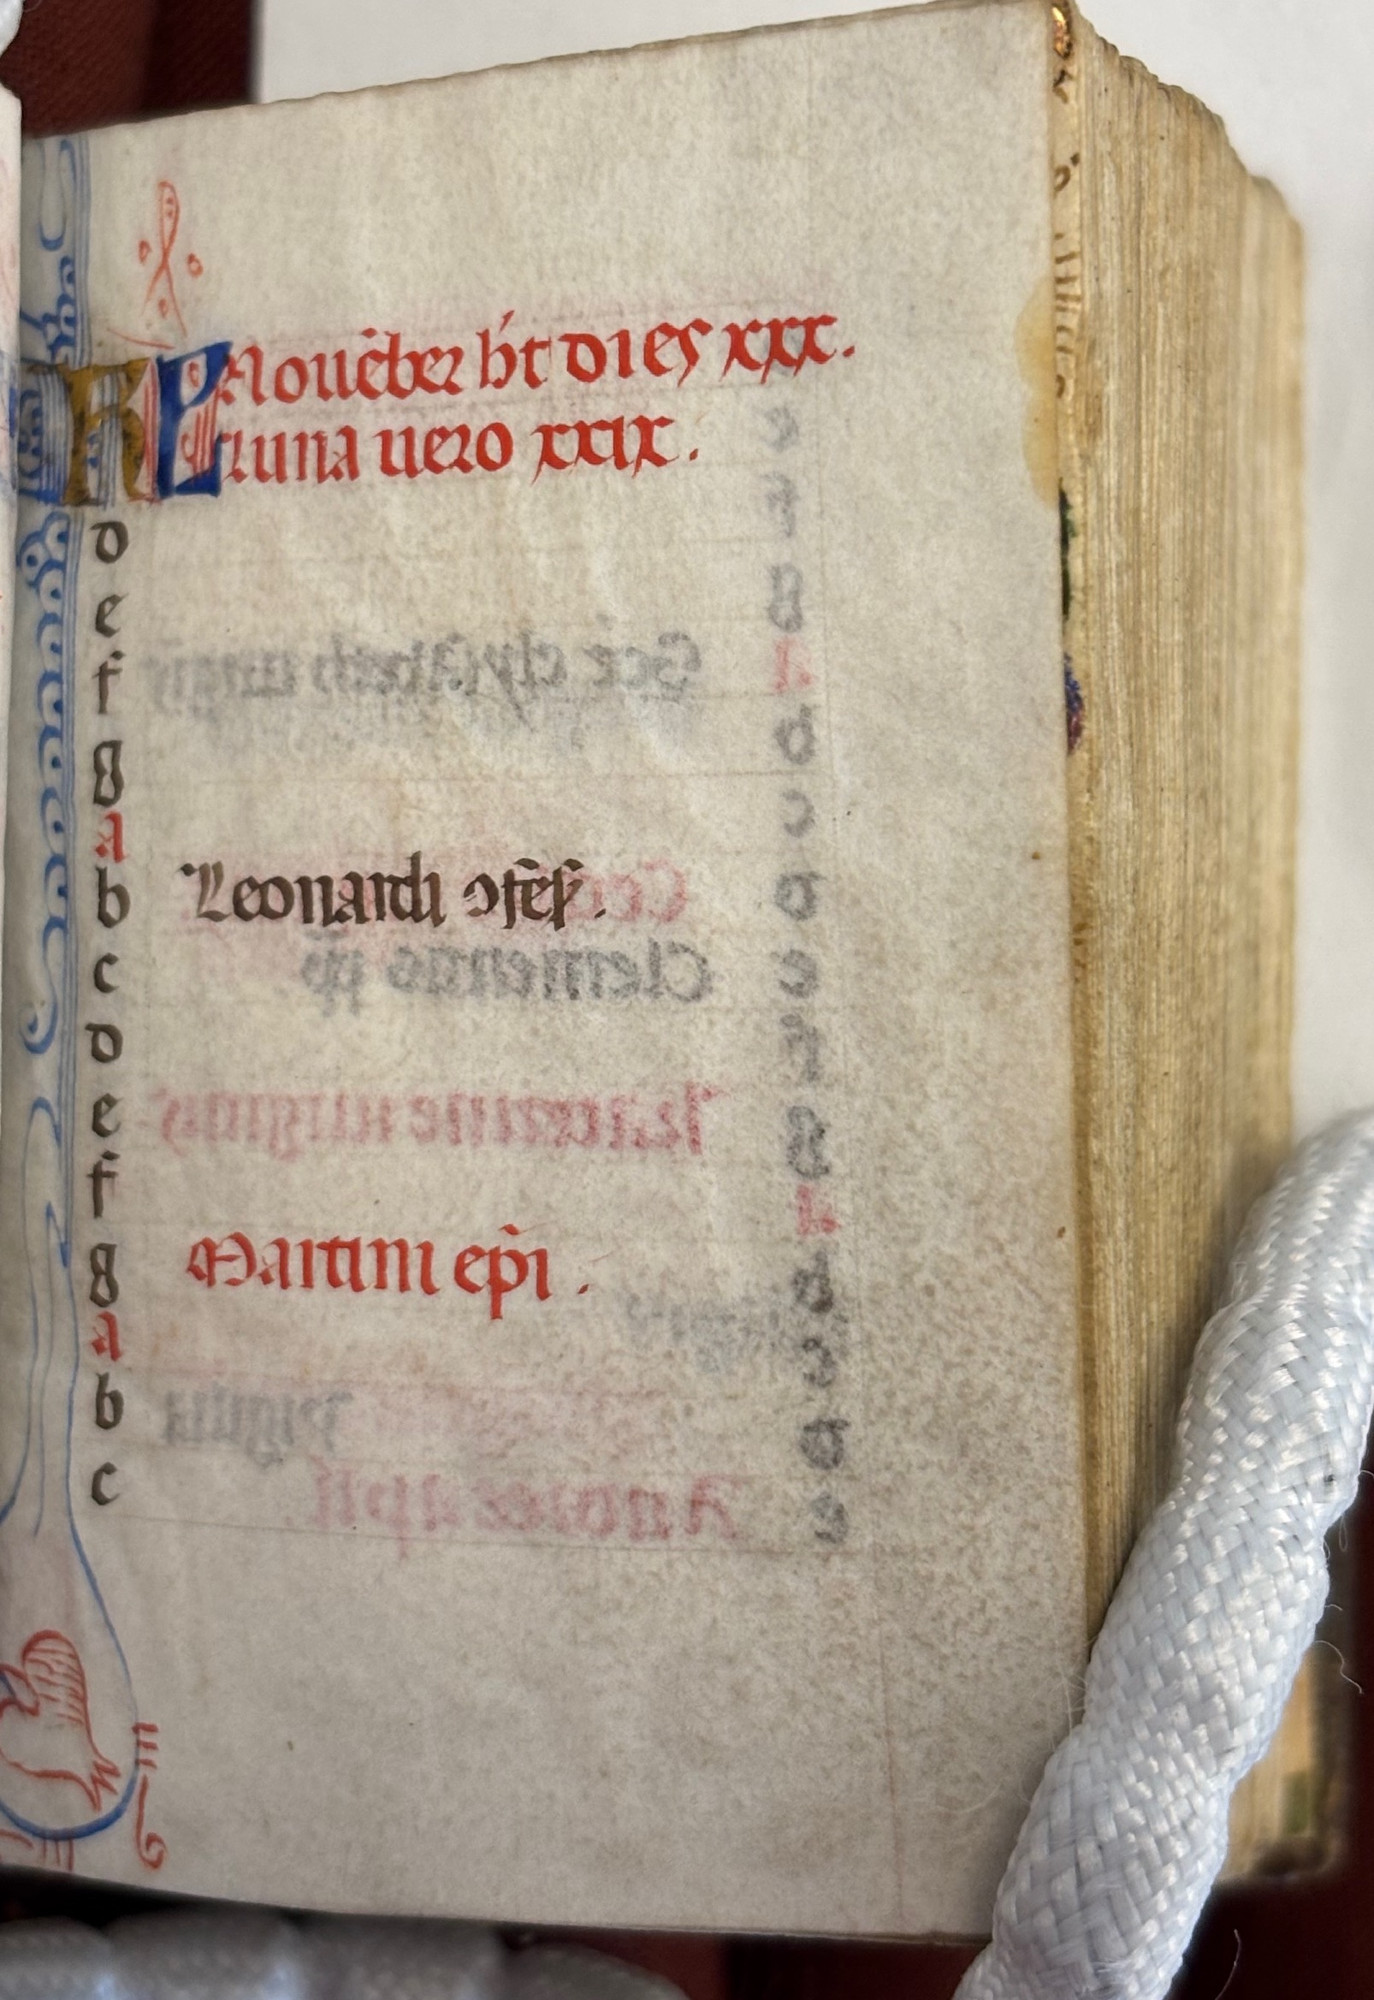 KL Nouēber ht dies xxx.
luna uero xxix.
d
e
f
g
A
b Leonardi ɔfeſ.
c
d
e
f
g Martini epi.
A
b
c